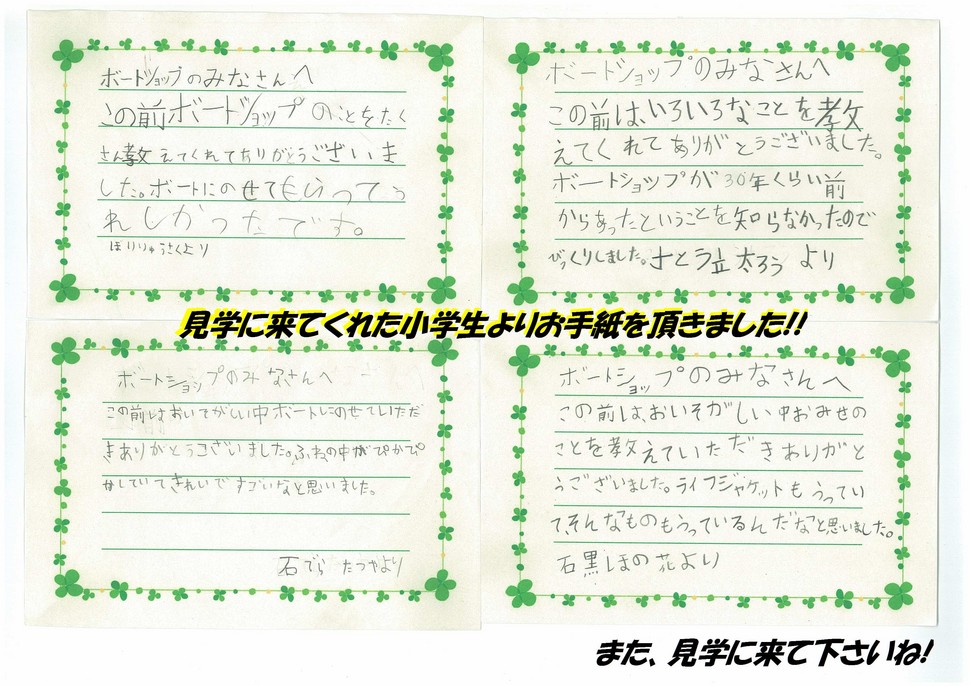 ボートショップのみなさんへ
この前ボートショップのことをたく
さん教えてくれてありがとうございま
した。ボートにのせてもらってう
れしかったです。
ほりりゅうさくより
ボートショップのみなさんへ
この前は、いろいろなことを教
えてくれてありがとうございました。
ボートショップが30年くらい前
からあったということを知らなかったので
びっくりしました。さとう立太ろうより
見学に来てくれた小学生よりお手紙を頂きました!!
ボートショップのみなさんへ
この前はおいそがしい中ボートにのせていただ
きありがとうございました。ふねの中がぴかぴ
かしていてきれいですごいなと思いました。
石でら たつやより
ボートショップのみなさんへ
この前は、おいそがしい中おみせの
ことを教えていただきありがと
うございました。ライフジャケットもうってい
てそんなものもうっているんだなと思いました。
石黒ほの花より
また、見学に来て下さいね!